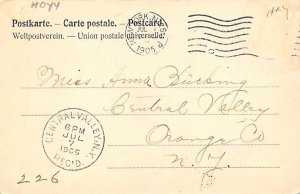 HOYY
Postkarte. – Carte postale. – Postkarte.
Weltpostverein. – Union postale universelle.
JUL
1906
Miss Anna Bücking
Central Valley
Orange Co
N. Y.
CENTRAL VALLEY, N.Y.
6 PM
JUL
7
1906
REC'D.
226